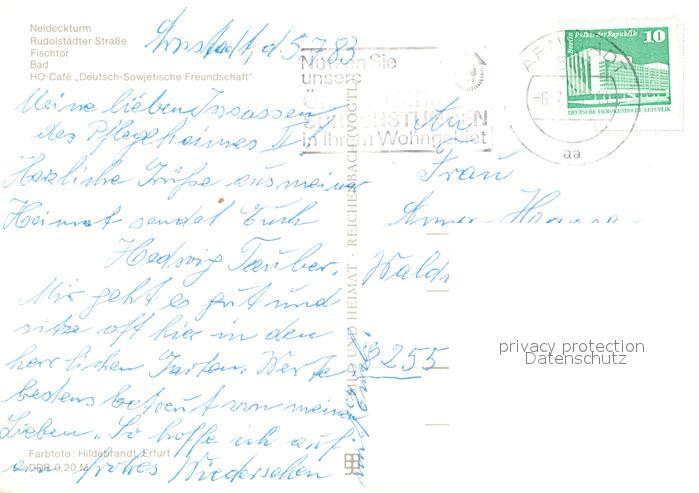 Neideckturm
Rudolstädter Straße
Fischtor
Bad
HO-Café „Deutsch-Sowjetische Freundschaft"
Arnstadt, d. 5.7.83
Meine lieben Insassen
des Pflegeheimes II
Herzliche Grüße aus meiner
Heimat sendet Euch
Hedwig Tauber.
Mir geht es gut und
sitze oft hier in den
herrlichen Garten. Werde
bestens betreut von meinen
Lieben. So hoffe ich auf
ein frohes Wiedersehen
Farbfoto: Hildebrandt, Erfurt
DDR 0,20 M
BILD UND HEIMAT · REICHENBACH (VOGTL)
Nutzen Sie
unsere
SPRECHSTUNDEN
in Ihrem Wohngebiet
Berlin Palast der Republik 10
DEUTSCHE DEMOKRATISCHE REPUBLIK
-6.7
aa
An
Frau
255
privacy protection
Datenschutz